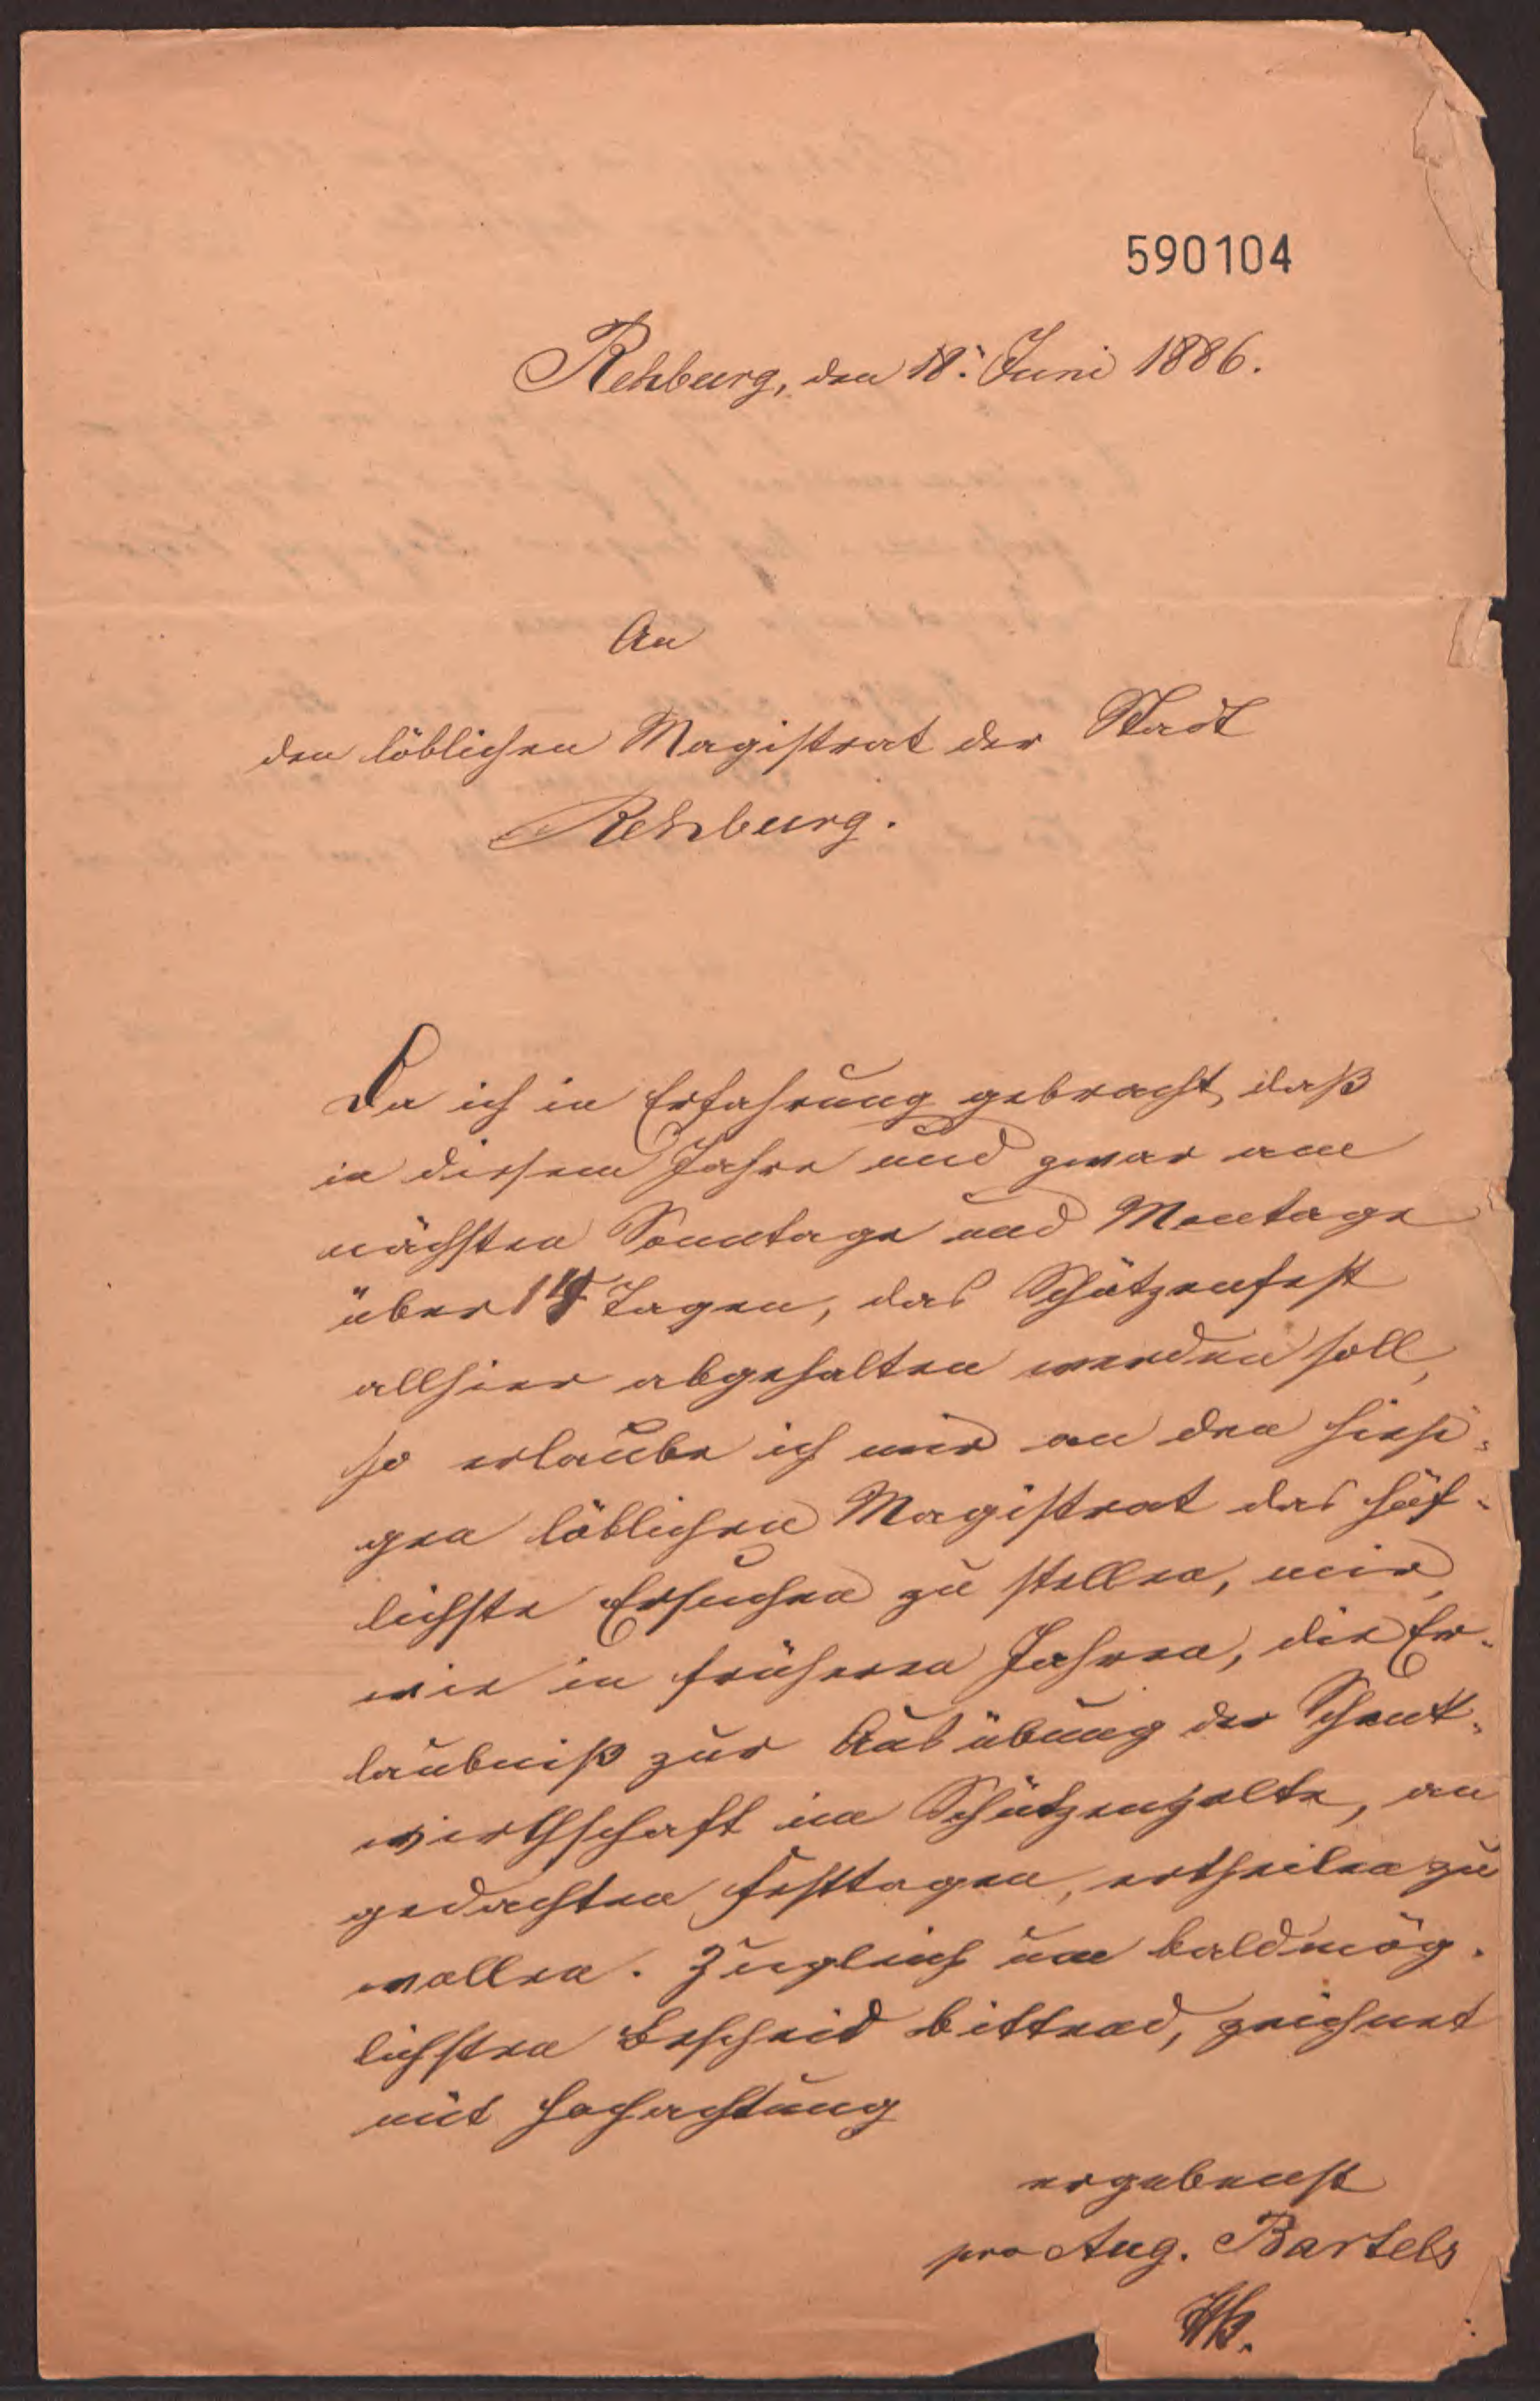 590104
Rehburg, den 18. Juni 1886.
An
den löblichen Magistrat der Stadt
Rehburg.
Da ich in Erfahrung gebracht, daß
in diesem Jahre und zwar am
nächsten Sonntage und Montage
über 14 Tagen, das Schützenfest
allhier abgehalten werden soll,
so erlaube ich mir an den hiesi-
gen löblichen Magistrat das höf-
lichste Ersuchen zu stellen, mir,
wie in früheren Jahren, die Er-
laubniß zur Ausübung der Schenk-
wirthschaft im Schützenzelte, an
gedachten Festtagen, ertheilen zu
wollen. Zugleich um baldmög-
lichsten Bescheid bittend, zeichnet
mit Hochachtung
ergebenst
pro Aug. Bartels